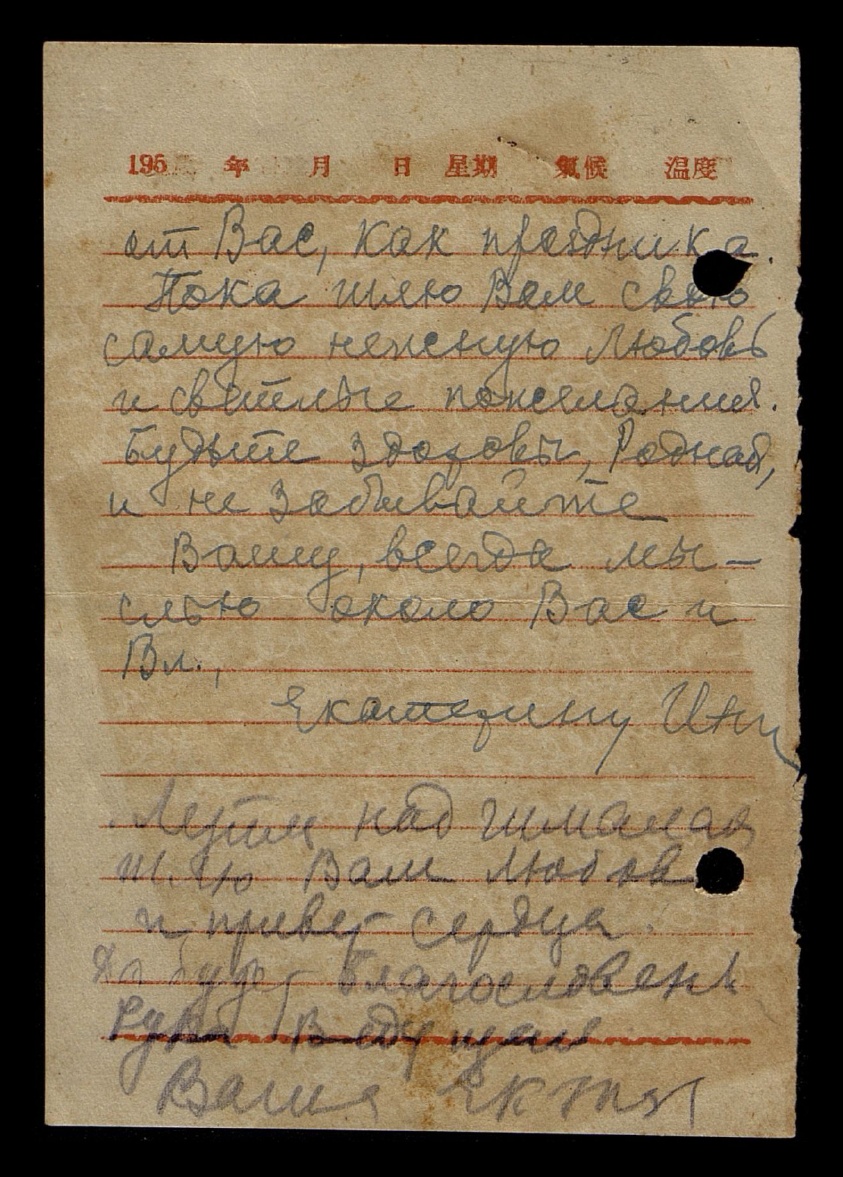 195 年 月 日 星期 氣候 温度
от Вас, как праздника.
Пока шлю Вам свою
самую нежную любовь
и светлые пожелания.
Будьте здоровы, Родная,
и не забывайте
Вашу, всегда мы-
слью около Вас и
Вл.,
Екатерину Ин
Летим над
шлю Вам любов
и привет сердца.
Да будет благословен
Рука Ведущая
Ваша